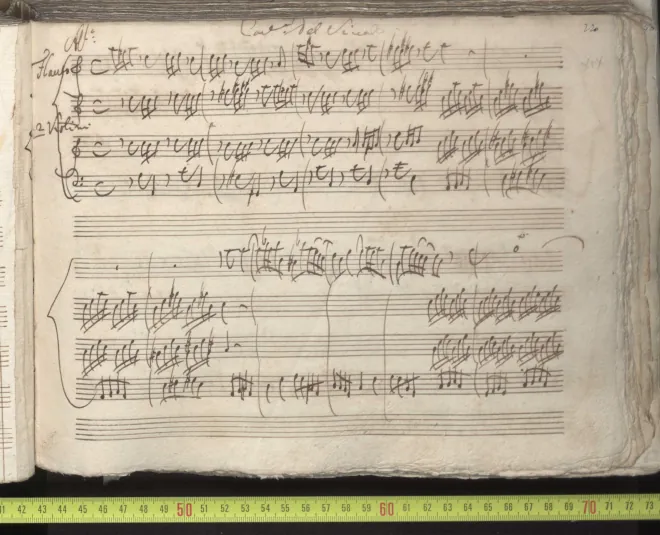 Del
All°:
Flauto
2 Violini
41 42 43 44 45 46 47 48 49 50 51 52 53 54 55 56 57 58 59 60 61 62 63 64 65 66 67 68 69 70 71 72 73